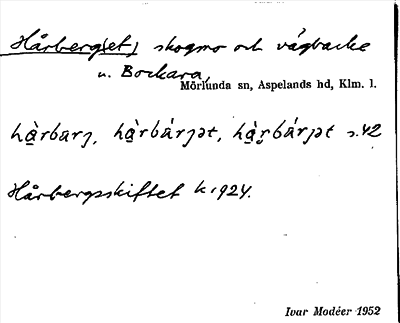 Hårberg(et) skogmo och vägbacke
u. Bockara,
Mörlunda sn, Aspelands hd, Klm. l.
hàrbarj, hàrbárjət, hàr̥bárjət s.42
Hårbergsskiftet k 1924.
Ivar Modéer 1952